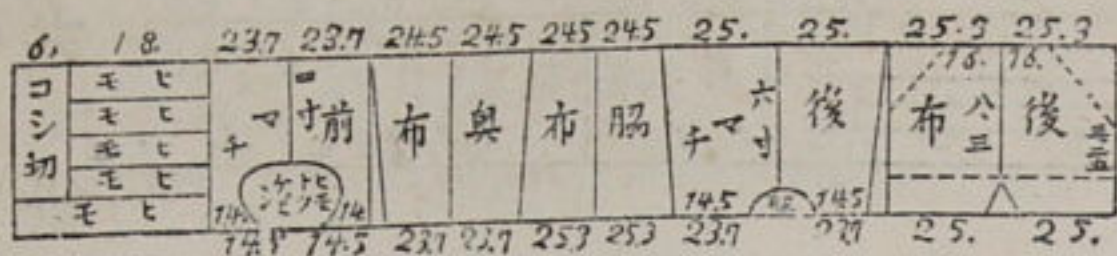 6. 18. 23.7 23.7 24.5 24.5 24.5 24.5 25. 25. 25.3 25.3
コシ切
ヒモ
ヒモ
ヒモ
ヒモ
ヒモ
マチ
一寸
前
布
奥
布
脇
六寸
マチ
後
16. 16.
布
八三
後
14.5 14.5
14.5 14.5 23.7 23.7 25.3 25.3 23.7 23.7 25. 25.